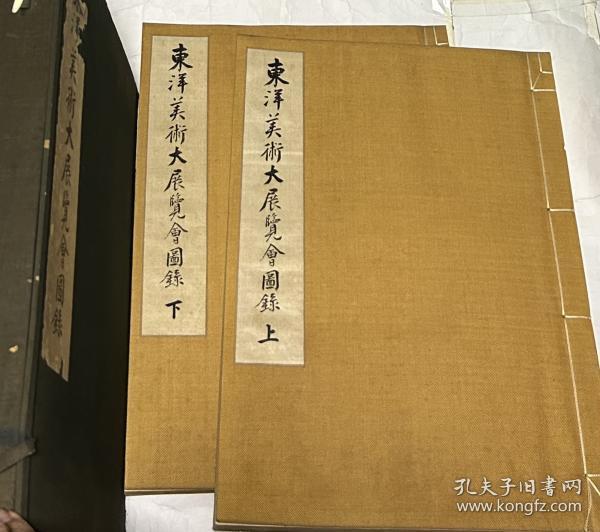 東洋美術大展覽會圖錄 上
東洋美術大展覽會圖錄 下
美術大展覽會圖錄
孔夫子旧书网
www.kongfz.com